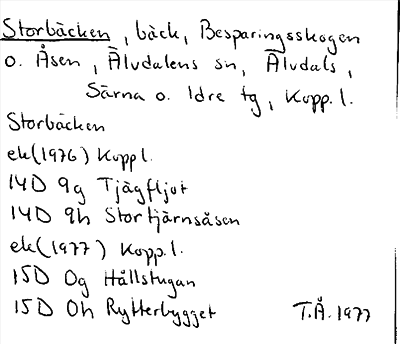 Storbäcken, bäck, Besparingsskogen
o. Åsen, Älvdalens sn, Älvdals,
Särna o. Idre tg, Kopp.l.
Storbäcken
ek(1976) Koppl.
14D 9g Tjägfljot
14D 9h Stortjärnsåsen
ek(1977) Kopp.l.
15D 0g Hållstugan
15D 0h Rytterbygget T.Å.1977